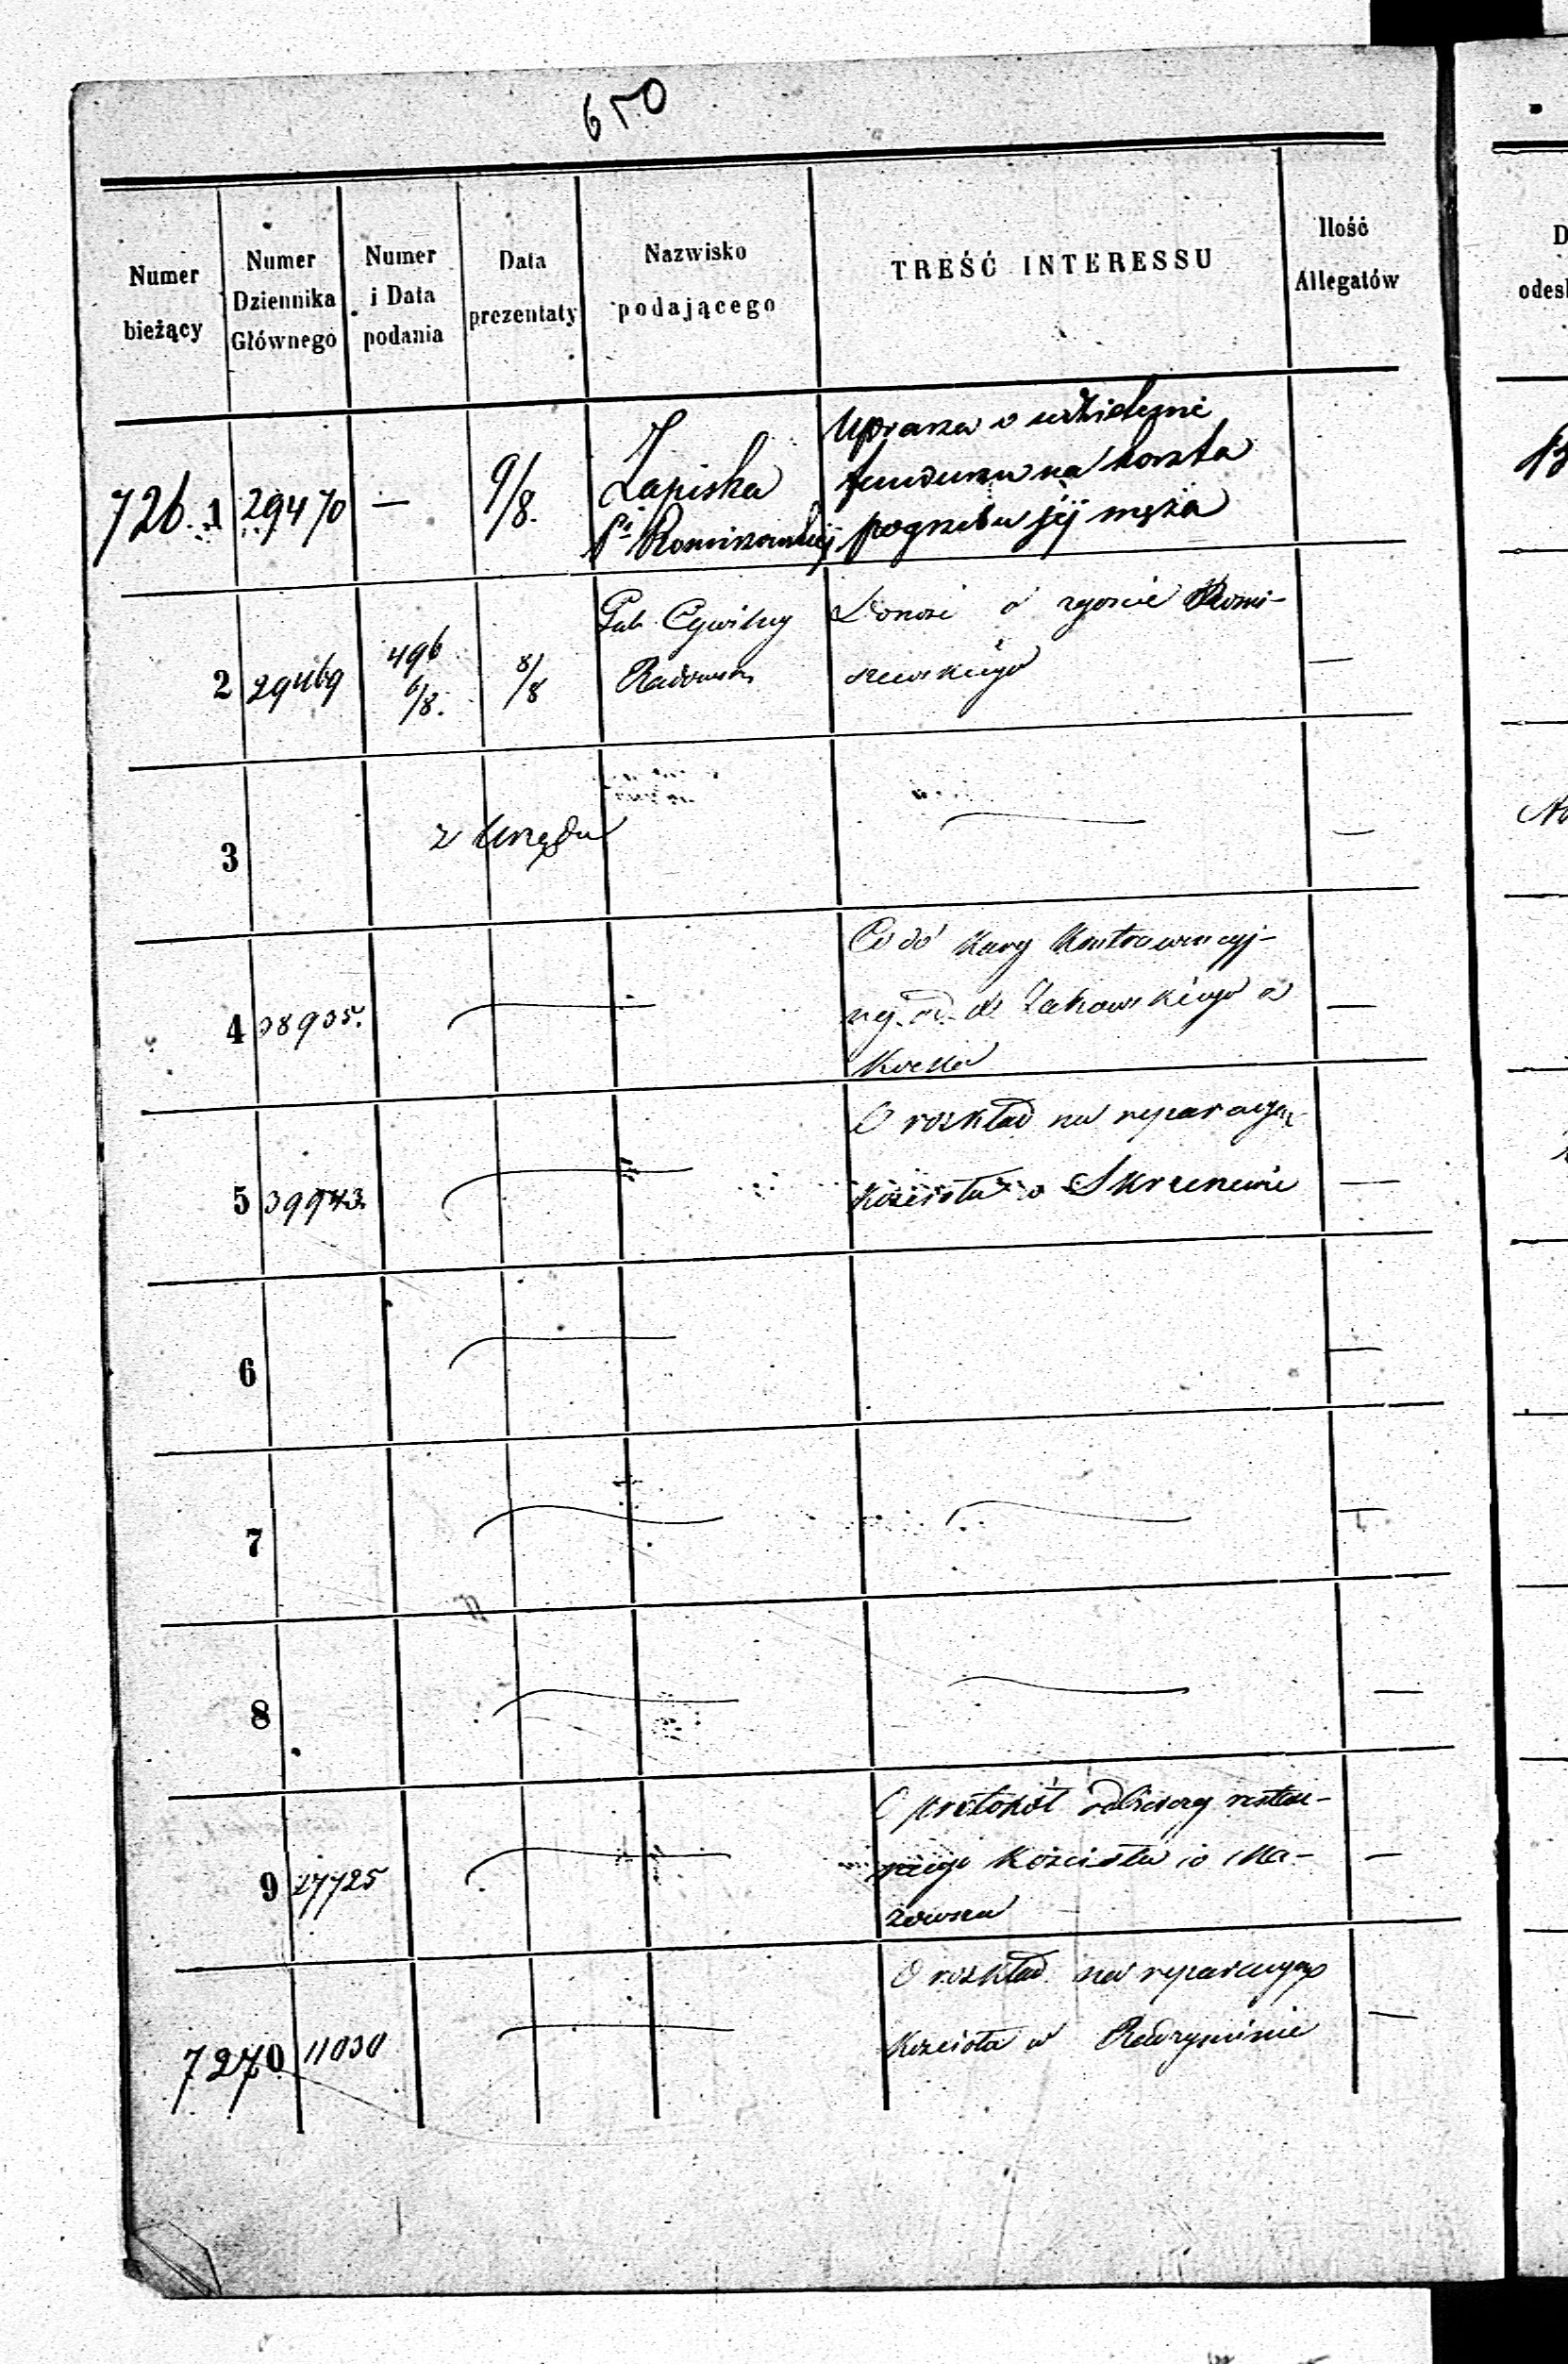 650
Numer bieżący
Numer Dziennika Głównego
Numer i Data podania
Data prezentaty
Nazwisko podającego
TREŚĆ INTERESSU
Ilość Allegatów
D
odesł
726.1 29470 — 9/8.
Zapiska
Uprasza o udzielenie
funduszu na koszta
pogrzebu jéj męża
2 29469 496 6/8. 8/8
Gub Cywilny
Donosi o zgonie Romi-
szewskiego —
3 z Urzędu —
4 38935.
Co do Kary Kontrawencyj-
néj od
—
5 39943.
O rozkład na reparacyą
Kościoła w Skrzeniewie? —
6 —
7 —
8 —
9 27725
O protokół odbiorczy restau-
Kościoła w Ma-
—
7270 11030
O rozkład na reparacyą
Kościoła w Radzyminie —